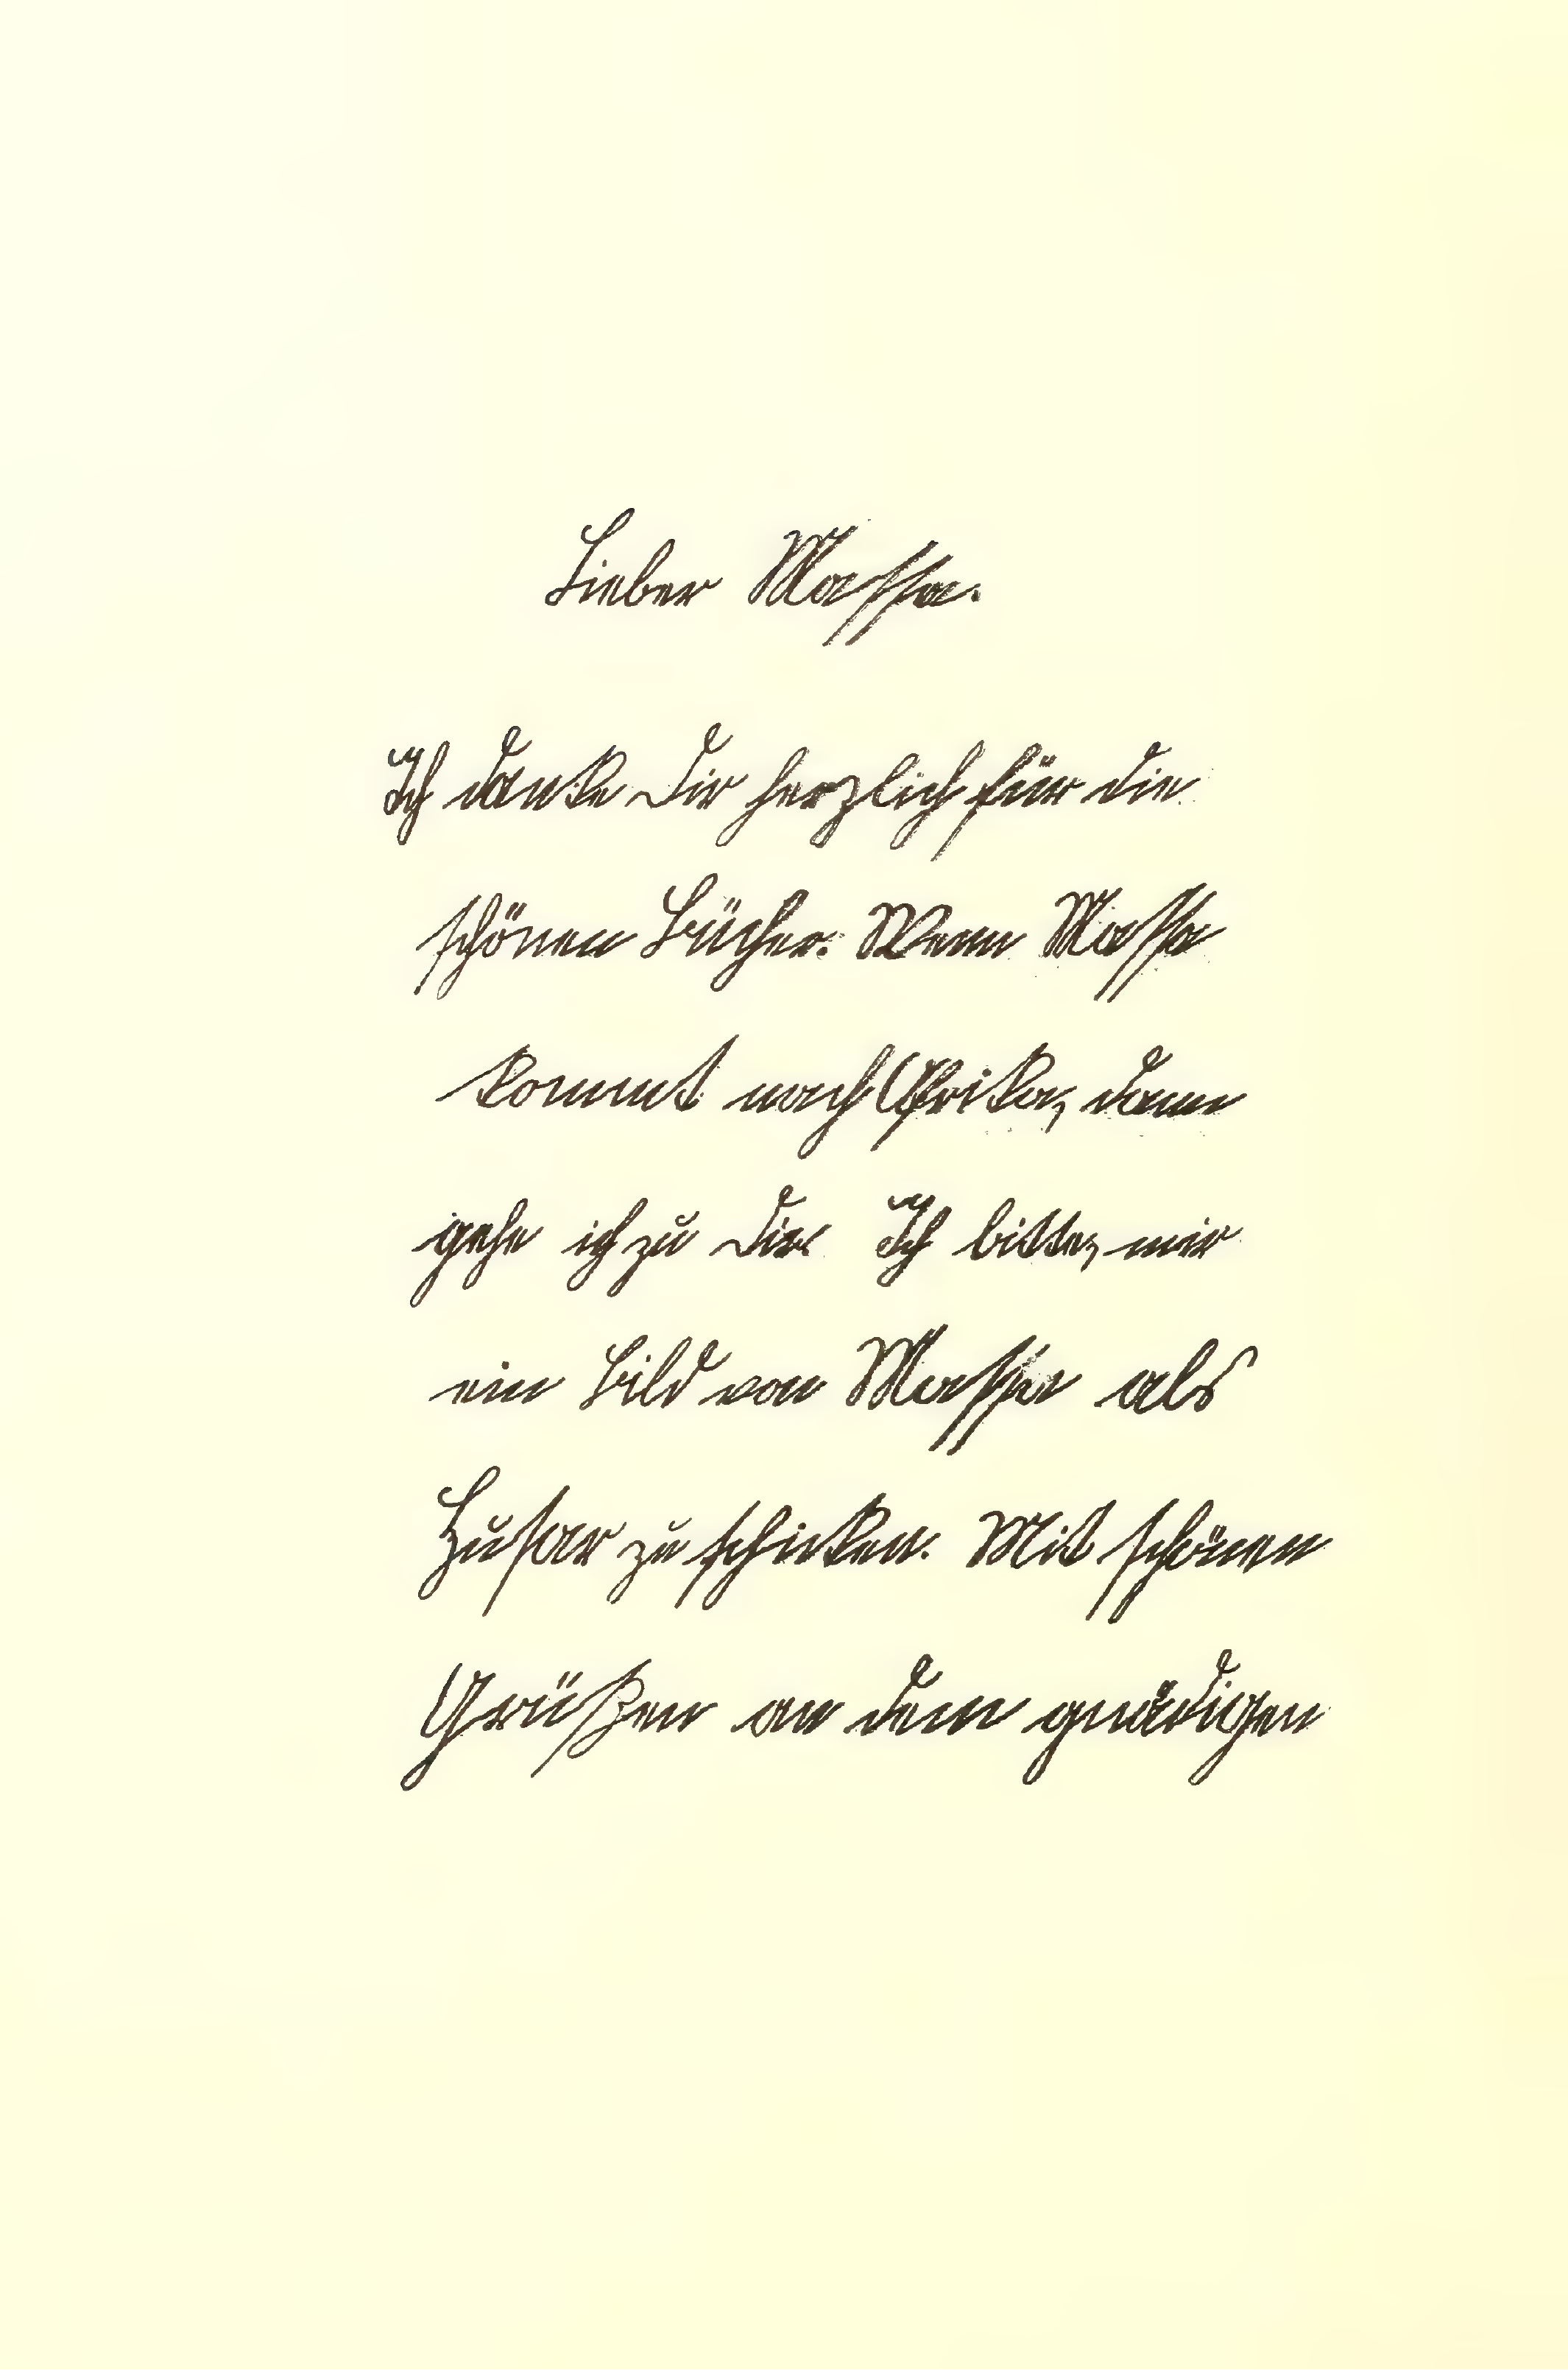 Lieber Massa.
Ich danke Dir herzlich für die
schönen Bücher. Wenn Massa
kommt nach Afrika, dann
gehe ich zu Dir. Ich bitte, mir
ein Bild von Massa als
Husar zu schicken. Mit schönen
Grüßen an dem gnädigen